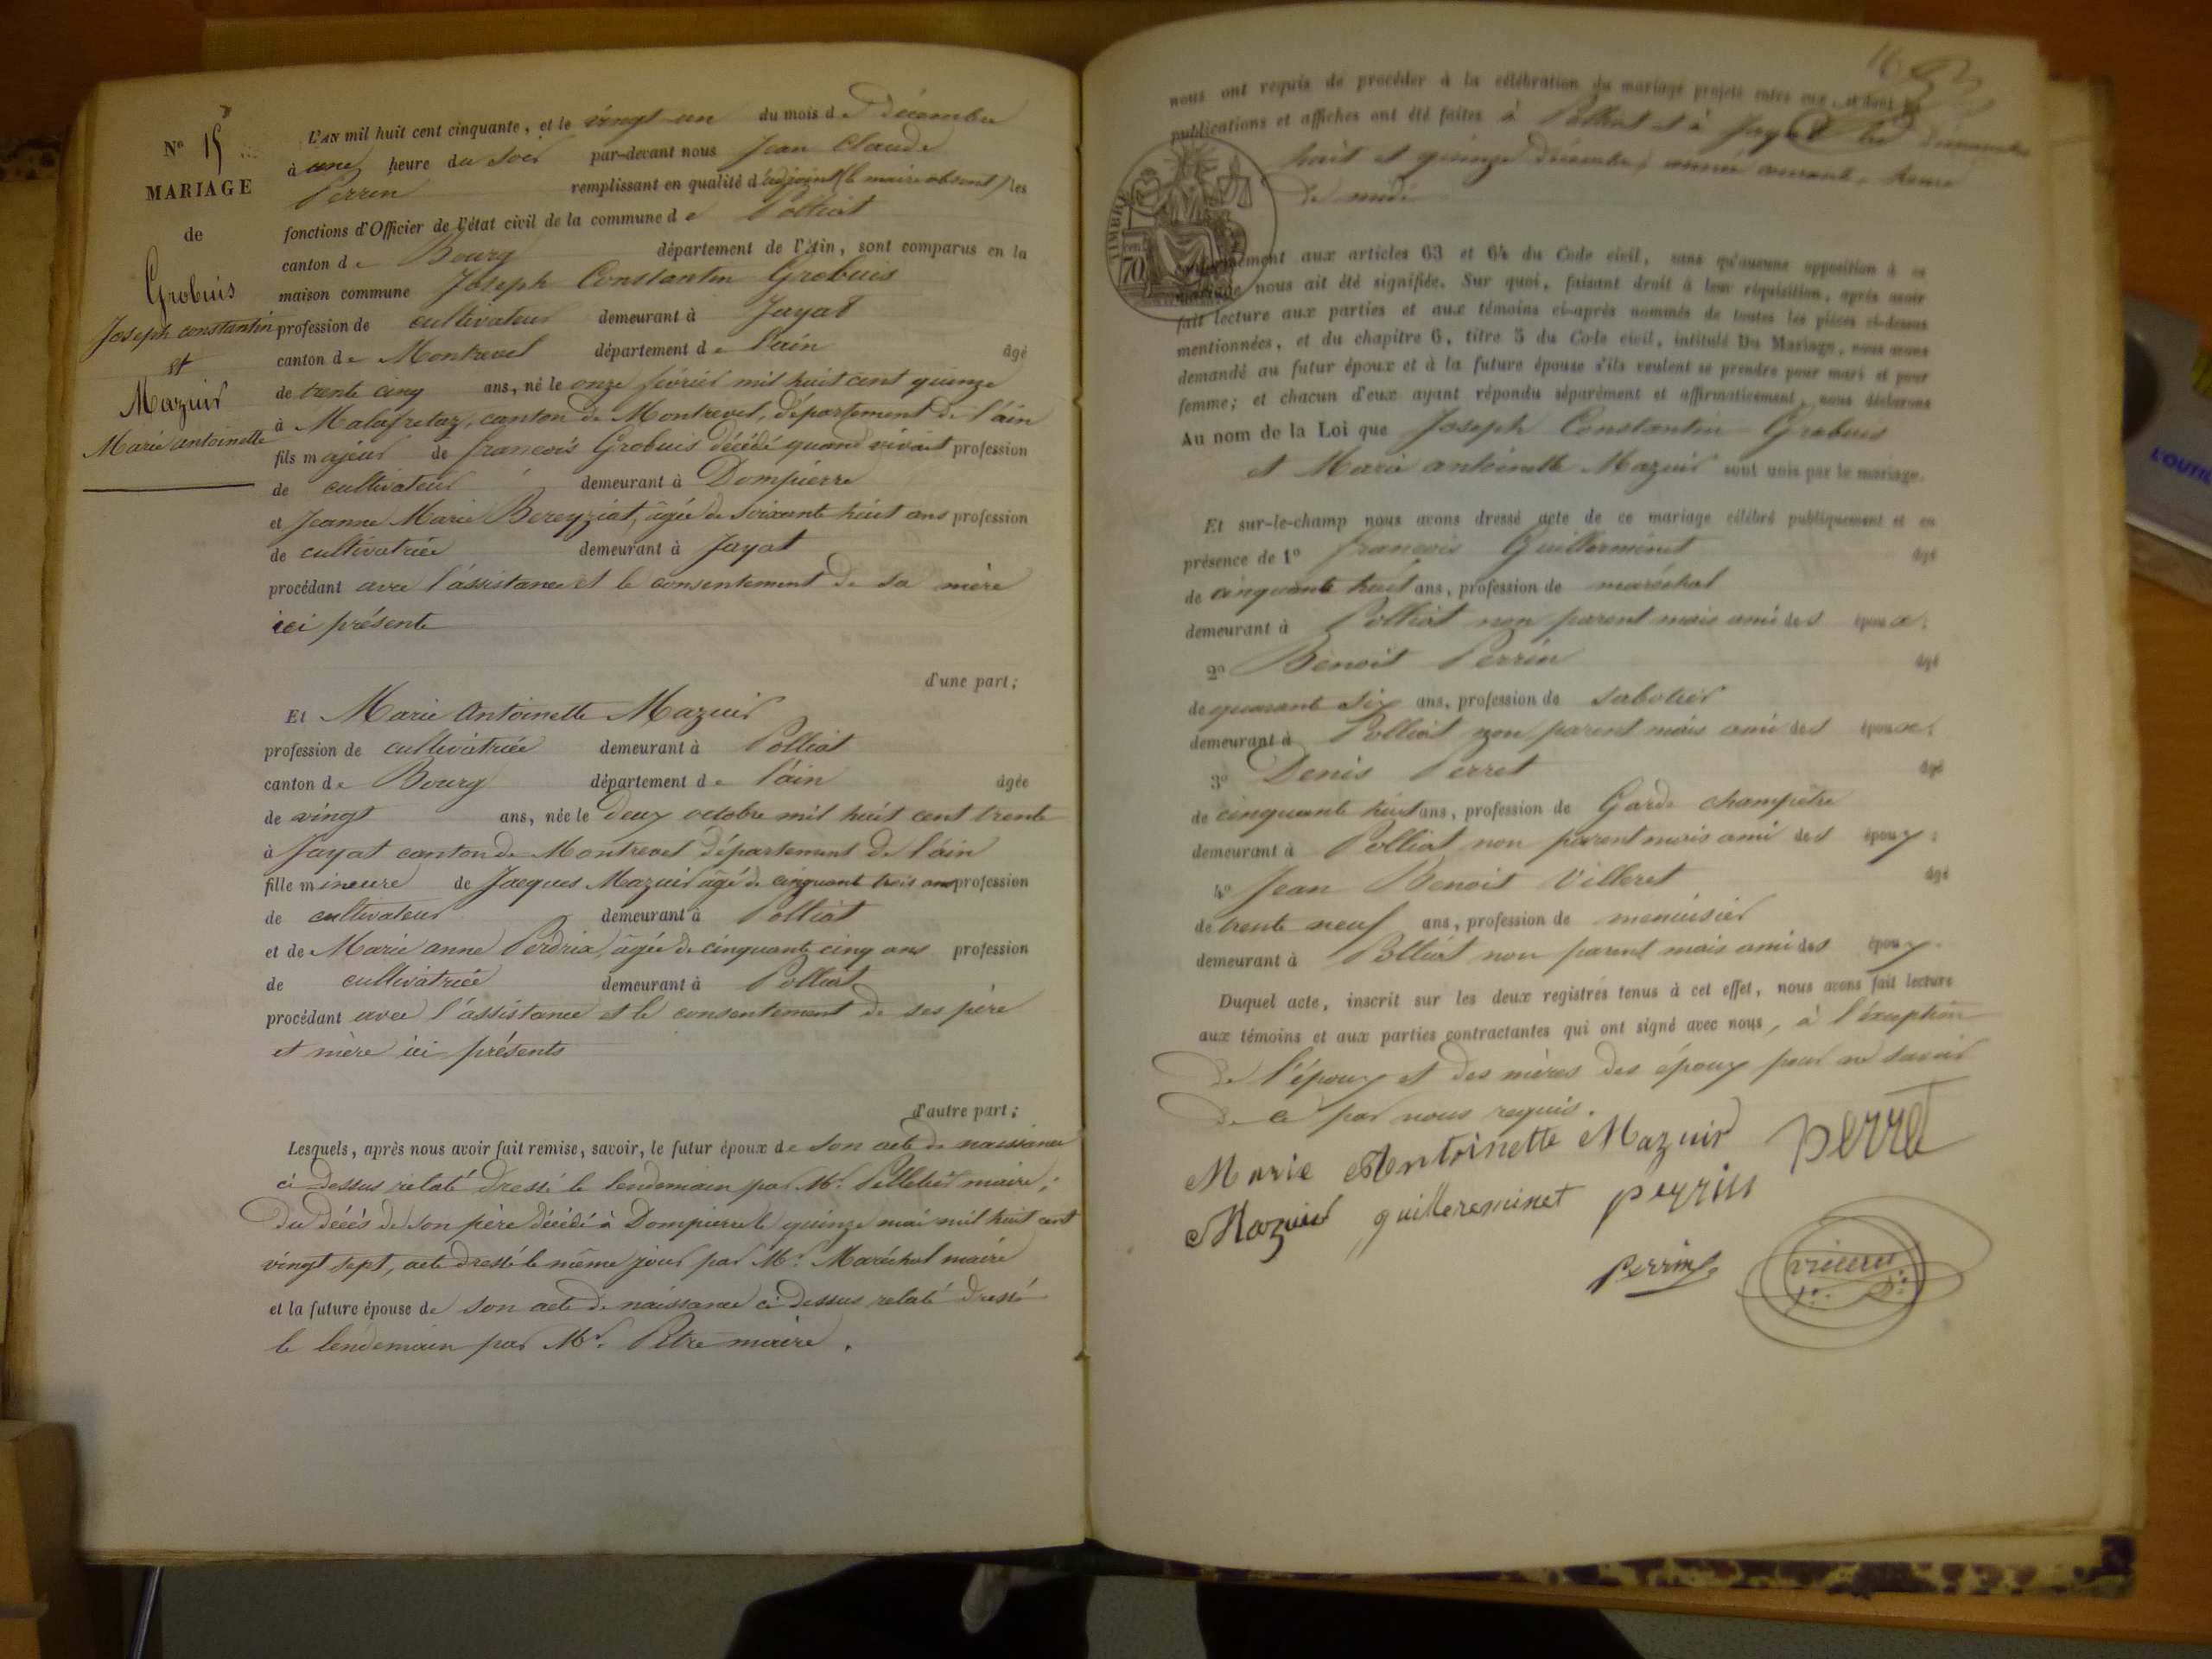 Nº 15
MARIAGE
de
Grobuis
Joseph constantin
et
Mazuir
Marie antoinette
L'AN mil huit cent cinquante, et le vingt un du mois de décembre
à une heure du soir par-devant nous Jean Claude
Perrin remplissant en qualité d'adjoint (le maire absent) les
fonctions d'Officier de l'état civil de la commune de Polliat
canton de Bourg département de l'Ain, sont comparus en la
maison commune Joseph Constantin Grobuis
profession de cultivateur demeurant à Jayat
canton de Montrevel département de l'ain âgé
de trente cinq ans, né le onze février mil huit cent quinze
à Malafretaz, canton de Montrevel, département de l'ain
fils majeur de francois Grobuis décédé quand vivait profession
de cultivateur demeurant à Dompierre
et Jeanne Marie Bereyziat, âgée de soixante huit ans profession
de cultivatrice demeurant à Jayat
procédant avec l'assistance et le consentement de sa mère
ici présente
d'une part;
Et Marie Antoinette Mazuir
profession de cultivatrice demeurant à Polliat
canton de Bourg département de l'ain âgée
de vingt ans, née le deux octobre mil huit cent trente
à Jayat canton de Montrevel département de l'ain
fille mineure de Jacques Mazuir âgé de cinquant trois ans profession
de cultivateur demeurant à Polliat
et de Marie anne Perdrix, âgée de cinquante cinq ans profession
de cultivatrice demeurant à Polliat
procédant avec l'assistance et le consentement de ses père
et mère ici présents
d'autre part;
Lesquels, après nous avoir fait remise, savoir, le futur époux de son acte de naissance
ci dessus relaté dressé le lendemain par Mr. Pelletier maire;
du décès de son père décédé à Dompierre le quinze mai mil huit cent
vingt sept, acte dressé le même jour par Mr. Maréchal maire
et la future épouse de son acte de naissance ci dessus relaté dressé
le lendemain par Mr. Pitre maire.
16
nous ont requis de procéder à la célébration du mariage projeté entre eux, et dont les
publications et affiches ont été faites à Polliat et à Jayat les dimanches
huit et quinze décembre, année courante, heure
de midi
TIMBRE
70
conformément aux articles 63 et 64 du Code civil, sans qu'aucune opposition à ce
mariage nous ait été signifiée. Sur quoi, faisant droit à leur réquisition, après avoir
fait lecture aux parties et aux témoins ci-après nommés de toutes les pièces ci-dessus
mentionnées, et du chapitre 6, titre 5 du Code civil, intitulé Du Mariage, nous avons
demandé au futur époux et à la future épouse s'ils veulent se prendre pour mari et pour
femme; et chacun d'eux ayant répondu séparément et affirmativement, nous déclarons
Au nom de la Loi que Joseph Constantin Grobuis
et Marie antoinette Mazuir sont unis par le mariage.
Et sur-le-champ nous avons dressé acte de ce mariage célébré publiquement et en
présence de 1º francois Guillerminet âgé
de cinquante huit ans, profession de maréchal
demeurant à Polliat non parent mais ami des époux.
2º Benoit Perrin âgé
de quarant six ans, profession de sabotier
demeurant à Polliat non parent mais ami des époux.
3º Denis Perret âgé
de cinquante huit ans, profession de Garde champêtre
demeurant à Polliat non parent mais ami des époux;
4º Jean Benoit Villeret âgé
de trente neuf ans, profession de menuisier
demeurant à Polliat non parent mais ami des époux.
Duquel acte, inscrit sur les deux registres tenus à cet effet, nous avons fait lecture
aux témoins et aux parties contractantes qui ont signé avec nous, à l'éxception
de l'époux et des mères des époux pour ne savoir
de ce par nous requis.
Marie Antoinette Mazuir perret
Mazuir guillereminet peyrin
perrin
L'OUTIL